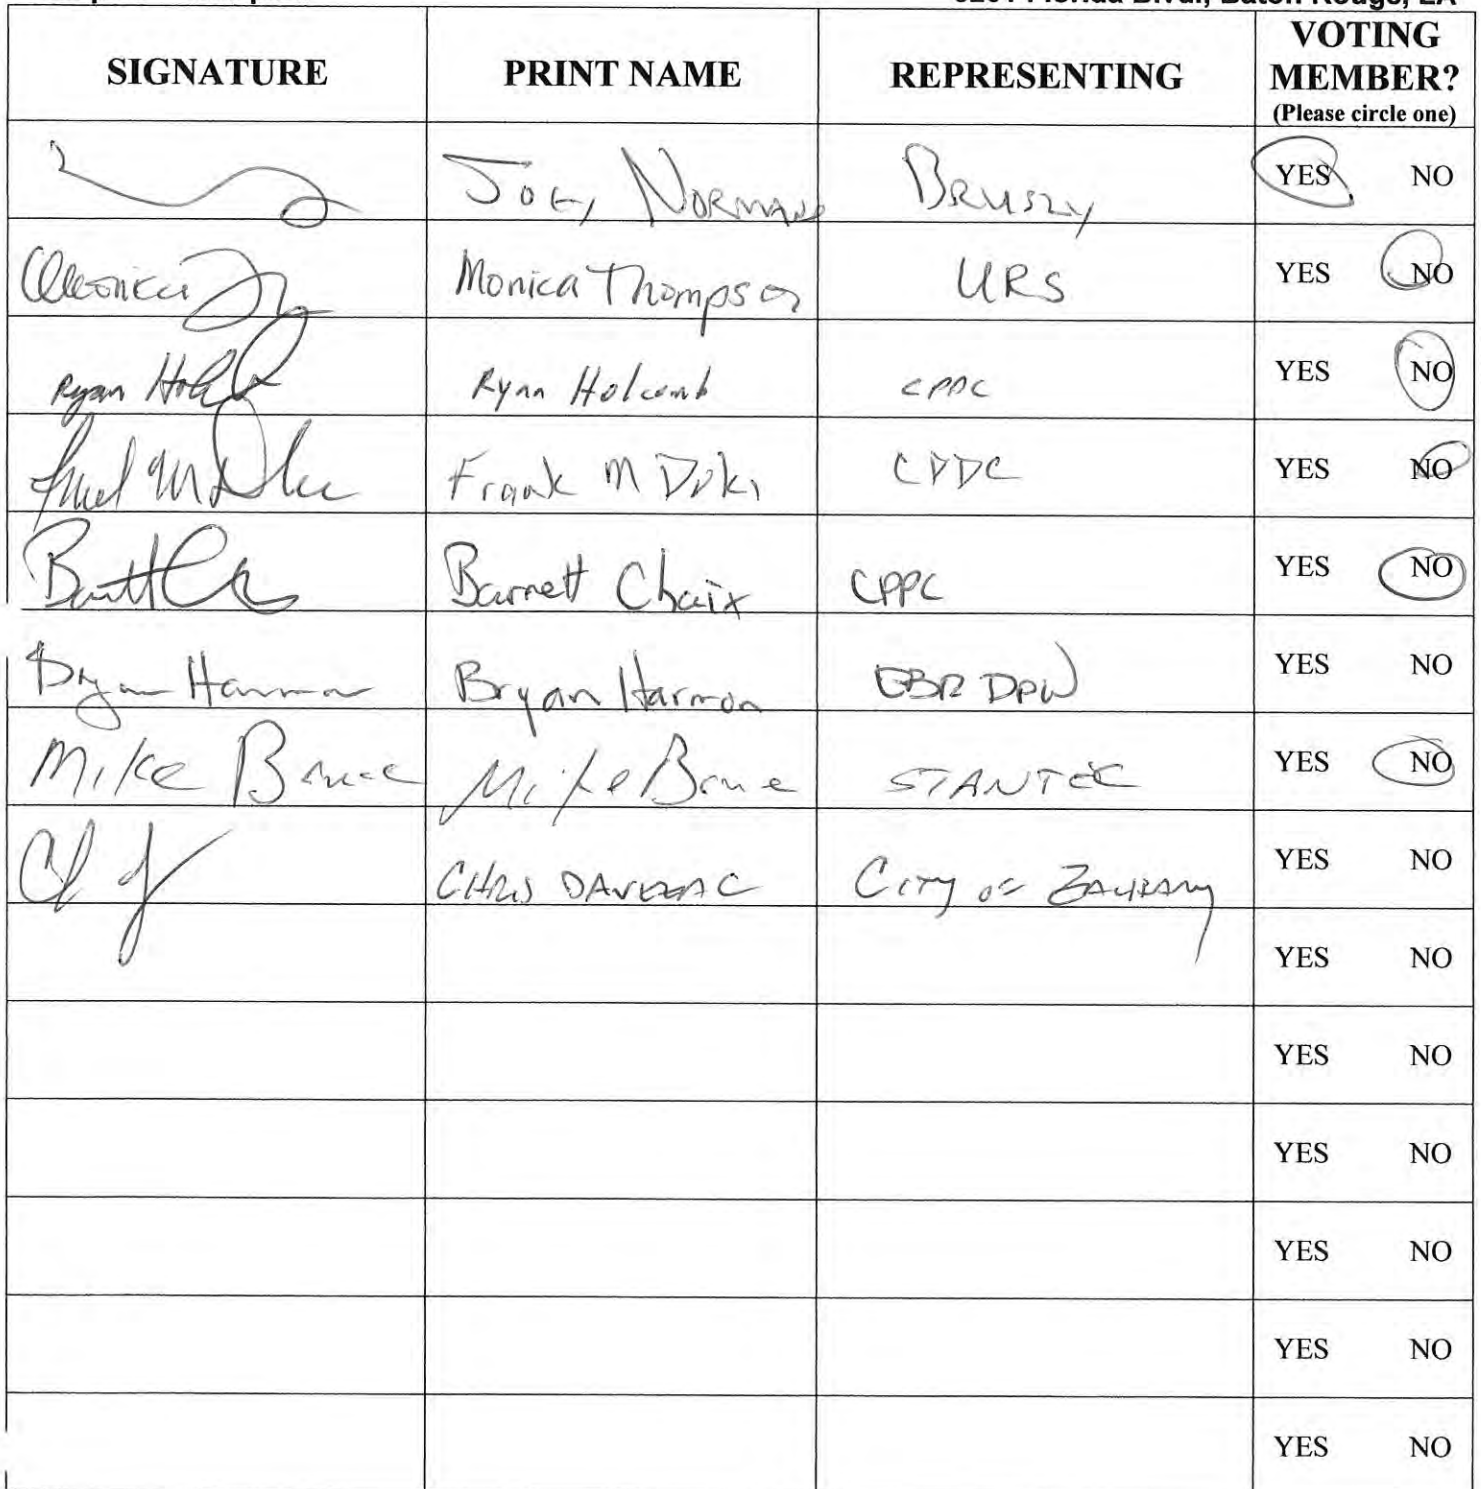 Florida Blvd., Baton Rouge, LA
SIGNATURE PRINT NAME REPRESENTING VOTING MEMBER? (Please circle one)
Joey Normand YES NO
Monica Thompson URS YES NO
Ryan Holcomb Ryan Holcomb CPPC YES NO
Frank M CPDC YES NO
Barnett Chaix CPPC YES NO
Bryan Harmon Bryan Harmon EBR DPW YES NO
Mike Bruce Mike Bruce STANTEC YES NO
CHRIS City of YES NO
YES NO
YES NO
YES NO
YES NO
YES NO
YES NO